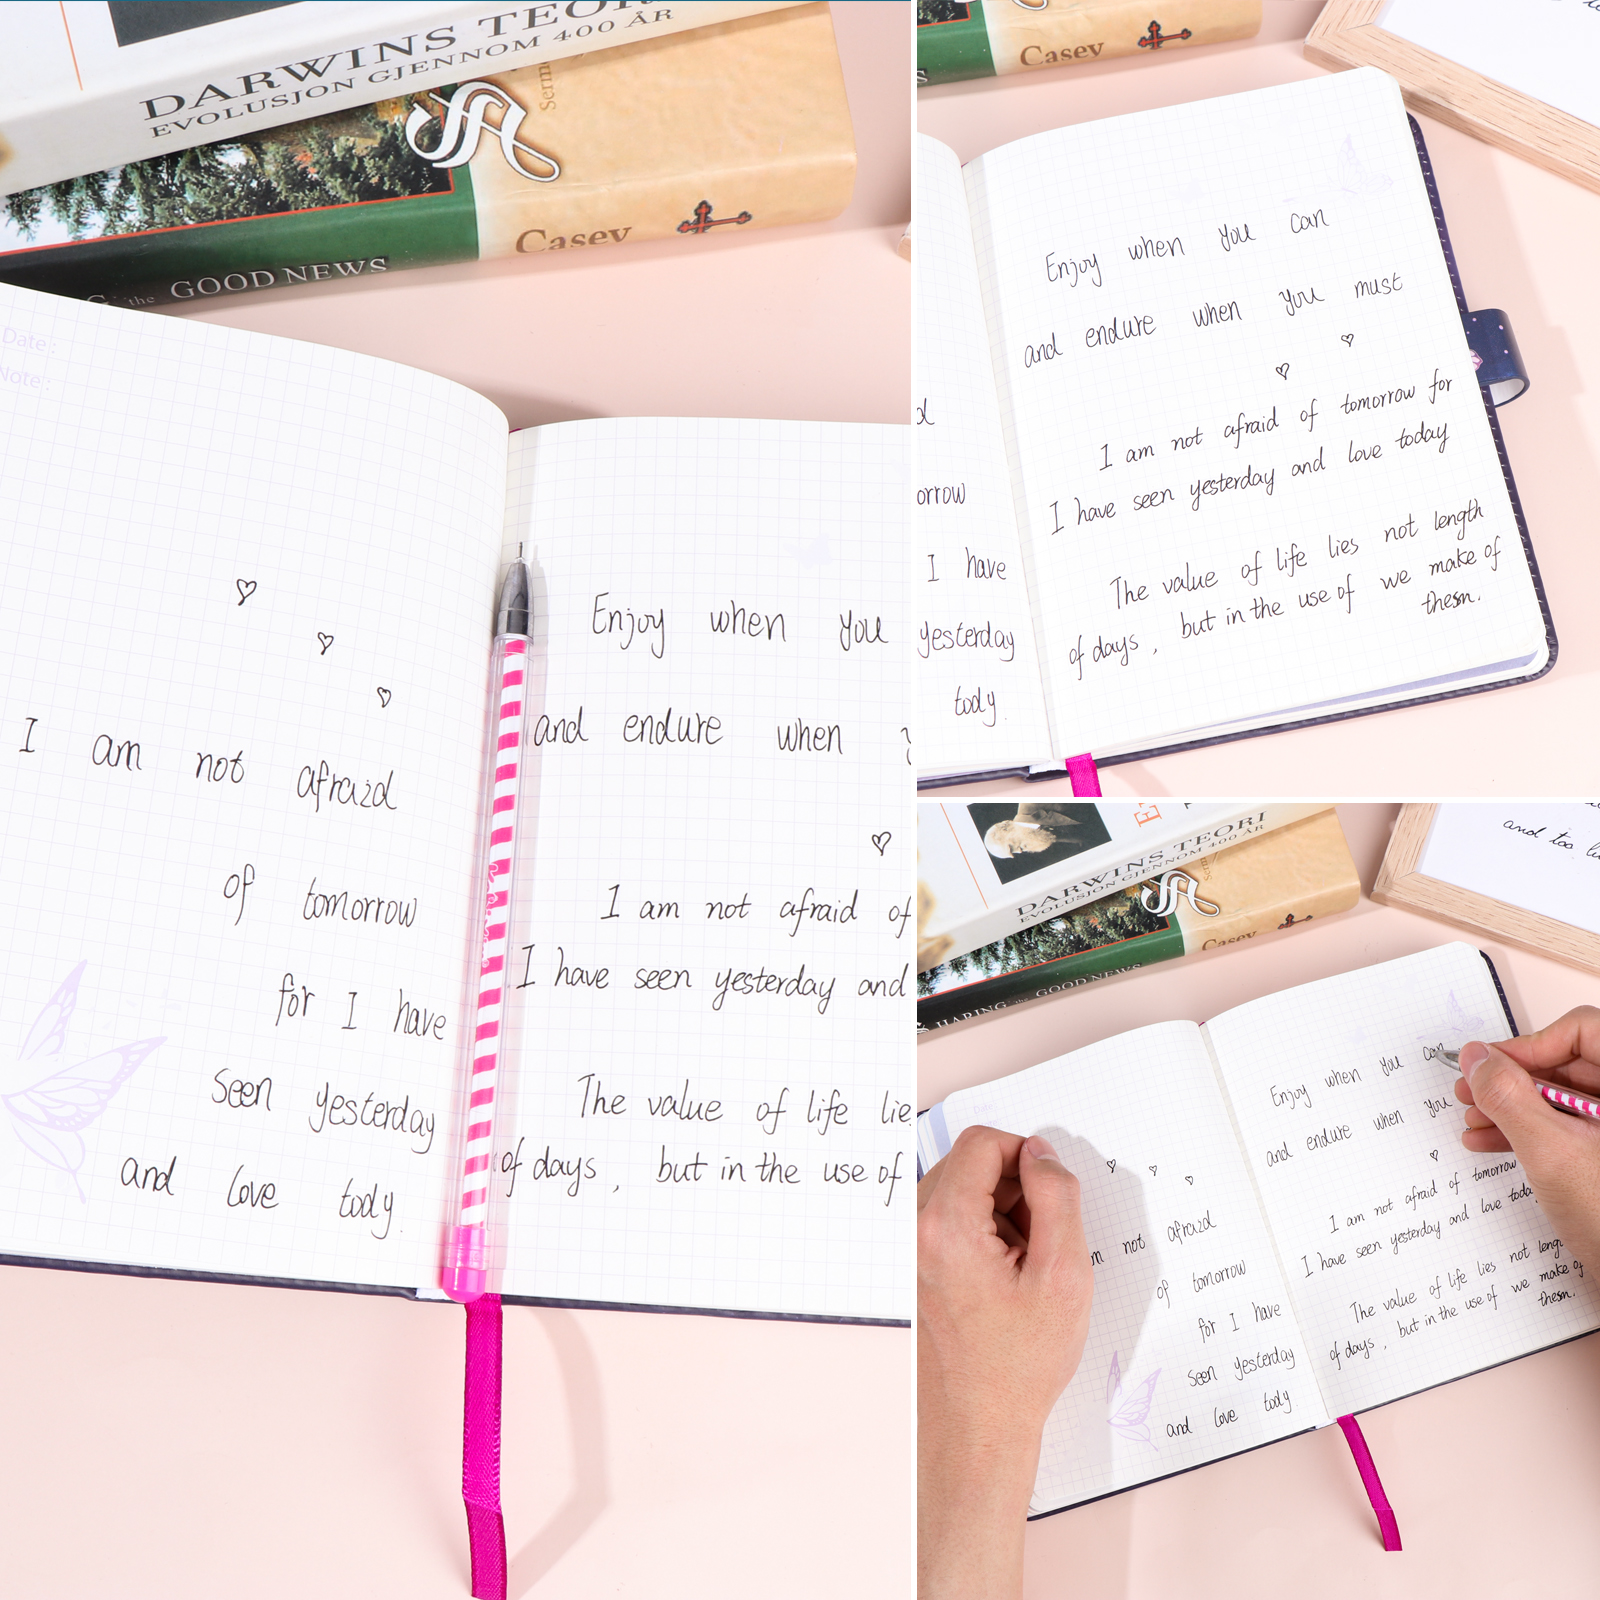 DARWINS TEORI
EVOLUSJON GJENNOM 400 ÅR
Casey
the GOOD NEWS
Date:
Note:
I am not afraid
of tomorrow
for I have
seen yesterday
and love tody.
Enjoy when you
and endure when
I am not afraid of
I have seen yesterday and
The value of life lie
of days, but in the use of
Casey
orrow
I have
yesterday
tody.
Enjoy when you can
and endure when you must
I am not afraid of tomorrow for
I have seen yesterday and love today
The value of life lies not length
of days, but in the use of we make of
thesm.
DARWINS TEORI
EVOLUSJON GJENNOM 400 ÅR
Casey
HARING the GOOD NEWS
and too
not afraid
of tomorrow
for I have
seen yesterday
and love tody
Enjoy when you can
and endure when you
I am not afraid of tomorrow
I have seen yesterday and love toda
The value of life lies not leng
of days, but in the use of we make of
thesm.